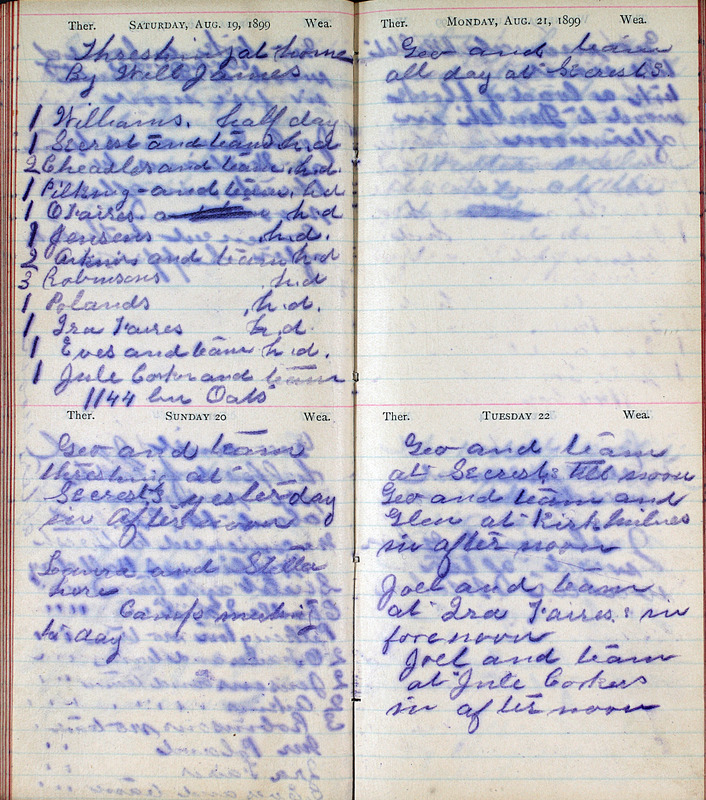 Ther. SATURDAY, AUG. 19, 1899 Wea.
Threshing at home
By Will James
1 Williams. half day
1 Secrest and team h.d
2 Cheadles and team. h.d.
1 Pilking- and team. h.d
1 O Faires. h.d
1 Jensens h.d.
2 and team h.d
3 Robinsons h.d
1 Polands h.d.
1 Ira Faires h.d.
1 Eves and team h.d.
1 Jule Corker and team
1144 bu Oats
Ther. SUNDAY 20 Wea.
Geo and team
threshing at
Secrests yesterday
in after noon
Laura and Stella
here
Camp meeting
to day
Ther. MONDAY, AUG. 21, 1899 Wea.
Geo and team
all day at Secrests.
Ther. TUESDAY 22 Wea.
Geo and team
at Secrests till noon
Geo and team and
Glen at Kirk
in after noon
Joel and team
at Ira Faires in
forenoon
Joel and team
at Jule Corkers
in after noon